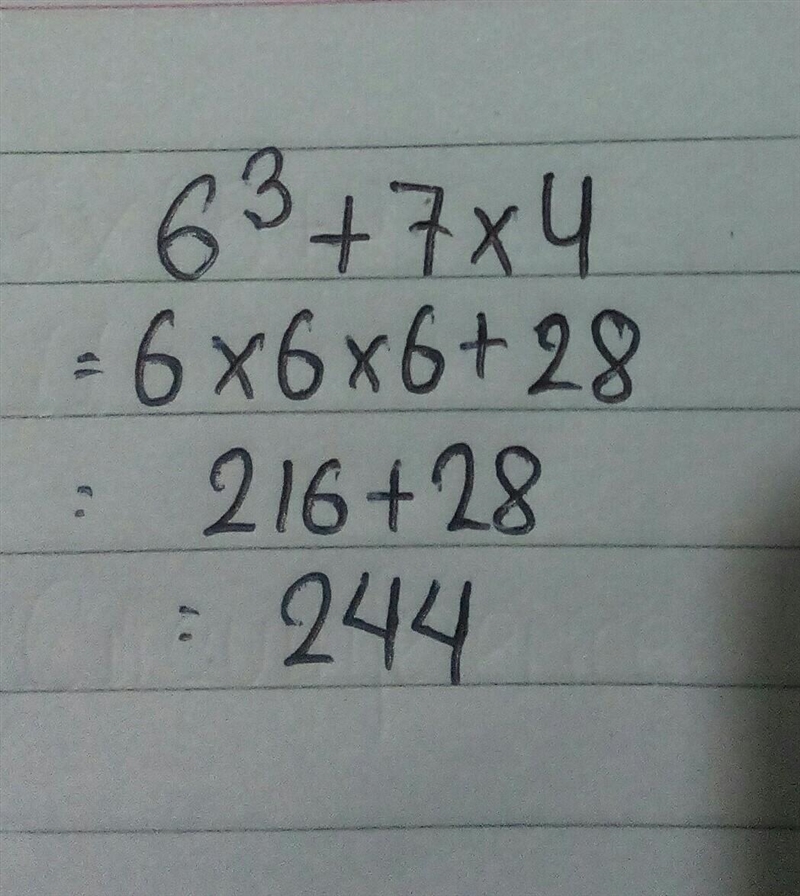 6³+7×4
=6×6×6+28
= 216+28
= 244